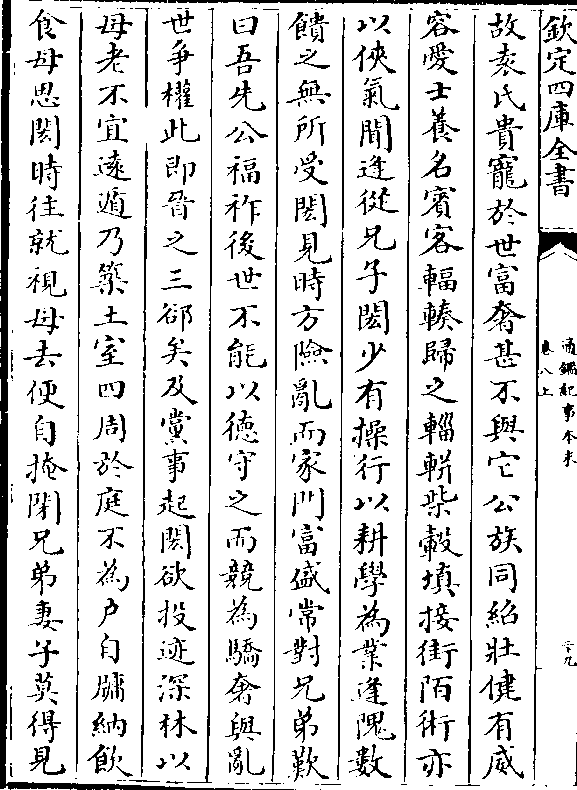 欽定四庫全書
通鑑紀事本末
卷八上
三九
故袁氏貴寵於世富奢甚不與它公族同紹壯健有威
容愛士養名賓客輻輳歸之輜軿柴轂填接街陌術亦
以俠氣聞逢從兄子閎少有操行以耕學為業逢隗數
饋之無所受閎見時方險亂而家門富盛常對兄弟歎
曰吾先公福祚後世不能以德守之而競為驕奢與亂
世爭權此即晉之三郤矣及黨事起閎欲投迹深林以
母老不宜遠遁乃築土室四周於庭不為戶自牖納飲
食母思閎時往就視母去便自掩閉兄弟妻子莫得見